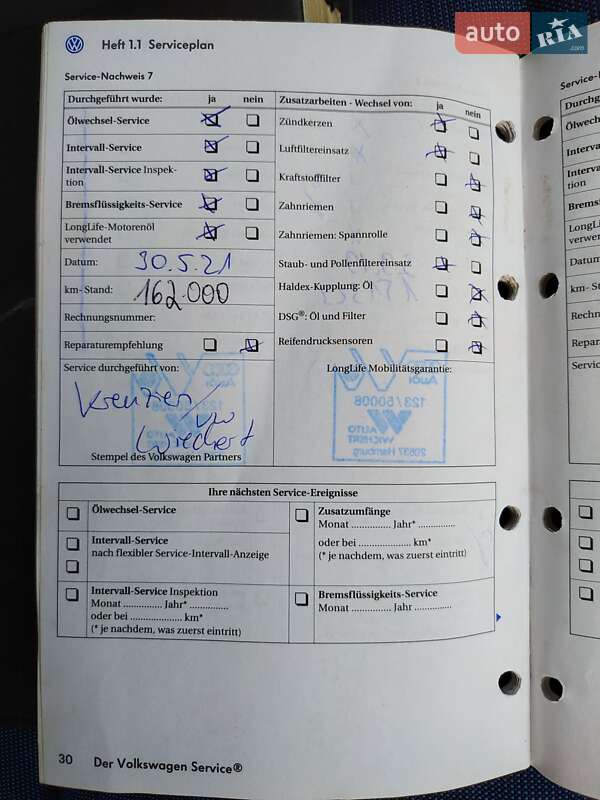 auto RIA .com
Heft 1.1 Serviceplan
Service-Nachweis 7
Durchgeführt wurde: ja nein
Ölwechsel-Service
Intervall-Service
Intervall-Service Inspek-
tion
Bremsflüssigkeits-Service
LongLife-Motorenöl
verwendet
Datum: 30.5.21
km- Stand: 162.000
Rechnungsnummer:
Reparaturempfehlung
Service durchgeführt von:
Wiechert
Stempel des Volkswagen Partners
Zusatzarbeiten - Wechsel von: ja nein
Zündkerzen
Luftfiltereinsatz
Kraftstofffilter
Zahnriemen
Zahnriemen: Spannrolle
Staub- und Pollenfiltereinsatz
Haldex-Kupplung: Öl
DSG®: Öl und Filter
Reifendrucksensoren
LongLife Mobilitätsgarantie:
Audi
123/50008
AUTO
WICHERT
20537 Hamburg
Ihre nächsten Service-Ereignisse
Ölwechsel-Service
Intervall-Service
nach flexibler Service-Intervall-Anzeige
Intervall-Service Inspektion
Monat .............. Jahr* ..............
oder bei .................... km*
(* je nachdem, was zuerst eintritt)
Zusatzumfänge
Monat .............. Jahr* ..............
oder bei .................... km*
(* je nachdem, was zuerst eintritt)
Bremsflüssigkeits-Service
Monat .............. Jahr ..............
30 Der Volkswagen Service®
Service-
Durchge
Ölwechs
Interval
Interval
tion
Bremsf
LongLife
verwend
Datum:
km- Sta
Rechnu
Repara
Service